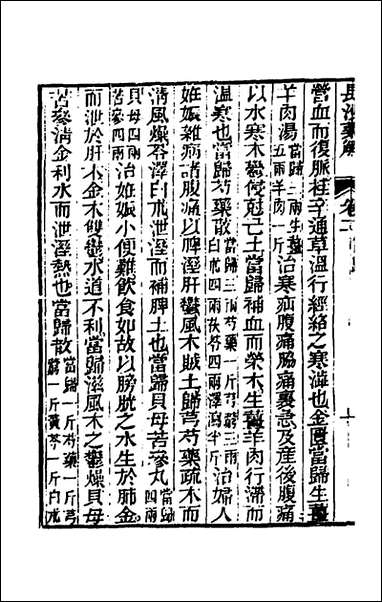 長沙藥解
營血而復脈桂辛通草溫行經絡之寒澀也金匱當歸生薑
羊肉湯當歸三兩生薑五兩羊肉一斤治寒疝腹痛脇痛裏急及產後腹痛
以水寒木鬱侵剋己土當歸補血而榮木生薑羊肉行滯而
溫寒也當歸芍藥散當歸三兩芍藥一斤芎藭三兩白朮四兩茯苓四兩澤瀉半斤治婦人
姙娠雜病諸腹痛以脾溼肝鬱風木賊土歸芎芍藥疏木而
淸風燥苓澤白朮泄溼而補脾土也當歸貝母苦參丸當歸四兩
貝母四兩苦參四兩治姙娠小便難飲食如故以膀胱之水生於肺金
而泄於肝木金木雙鬱水道不利當歸滋風木之鬱燥貝母
苦參淸金利水而泄溼熱也當歸散當歸一斤芍藥一斤芎藭一斤黃芩一斤白朮